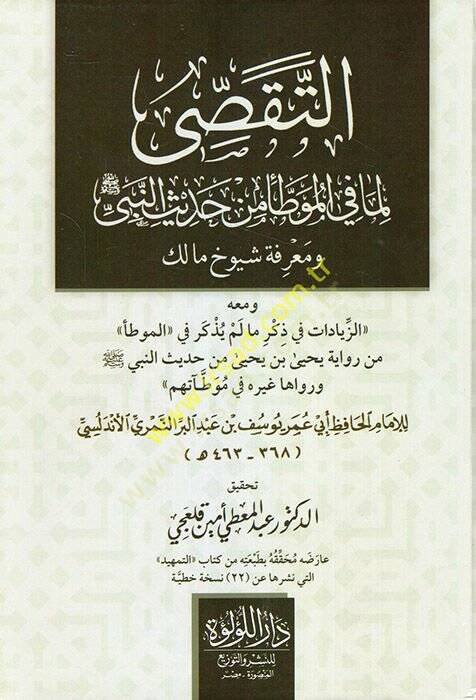 التَّقَصِّي
لِمَا فِي المُوَطَّأ مِنْ حَدِيثِ النَّبِيِّ ﷺ
وَمَعْرِفَة شيوخ مالك
ومعه
«الزِّيادات في ذِكْرِ ما لَمْ يُذْكَر في «الموطأ»
من رواية يحيىٰ بن يحيىٰ من حديث النبي ﷺ
ورواها غيره في مُوَطَّآتهم»
لِلإِمَامِ الحَافِظِ أَبِي عُمَر يُوسُف بْن عَبْدِ البَرِّ النَّمَرِيِّ الأَنْدَلُسِيِّ
(٣٦٨ - ٤٦٣ هـ)
تحقيق
الدكتور عبد المعطي أمين قلعجي
عارَضَه مُحَقِّقُهُ بِطَبْعَتِه من كتاب «التمهيد»
التي نشرها عن (٢٢) نسخة خطيَّة
دَارُ اللُّؤْلُؤَة
لِلنَّشْرِ وَالتَّوْزِيع
المَنْصُورَة - مِصْر